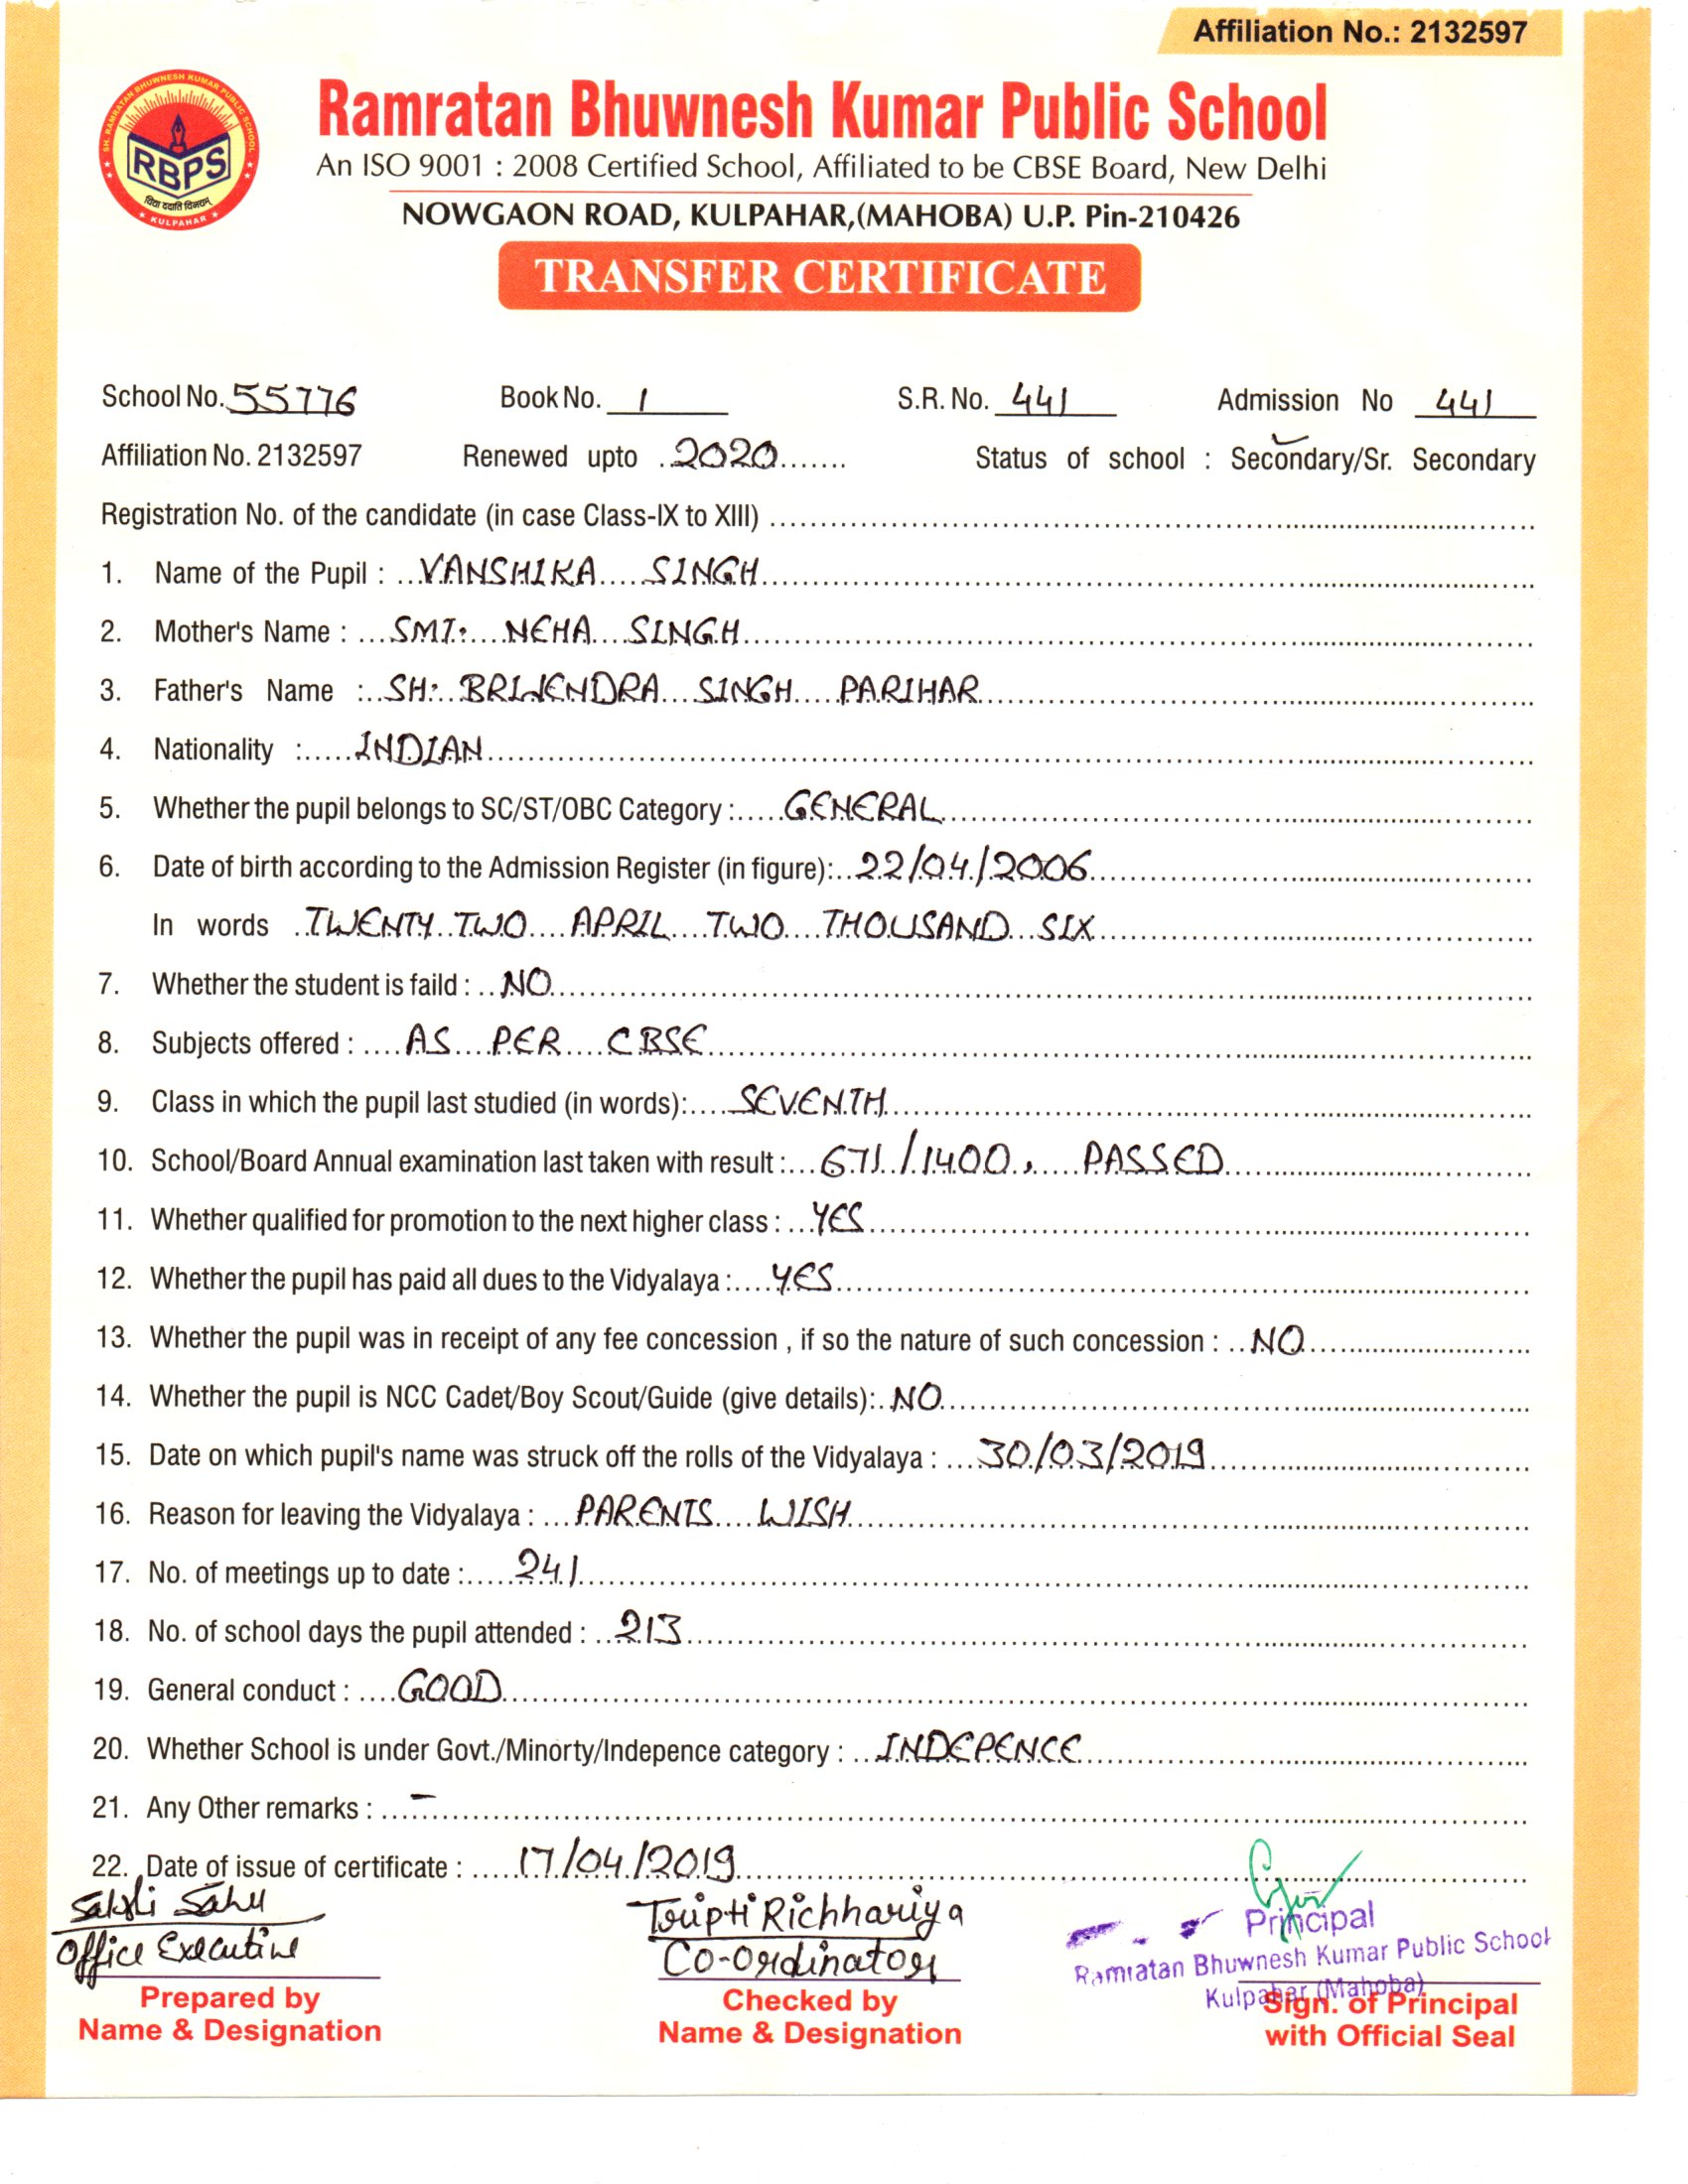 Affiliation No.: 2132597
SH. RAMRATAN BHUWNESH KUMAR PUBLIC SCHOOL
RBPS
विद्या ददाति विनयम्
KULPAHAR
Ramratan Bhuwnesh Kumar Public School
An ISO 9001 : 2008 Certified School, Affiliated to be CBSE Board, New Delhi
NOWGAON ROAD, KULPAHAR,(MAHOBA) U.P. Pin-210426
TRANSFER CERTIFICATE
School No. 55776 Book No. 1 S.R. No. 441 Admission No 441
Affiliation No. 2132597 Renewed upto 2020 Status of school : Secondary/Sr. Secondary
Registration No. of the candidate (in case Class-IX to XIII)
1. Name of the Pupil : VANSHIKA SINGH
2. Mother's Name : SMT. NEHA SINGH
3. Father's Name : SH. BRIJENDRA SINGH PARIHAR
4. Nationality : INDIAN
5. Whether the pupil belongs to SC/ST/OBC Category : GENERAL
6. Date of birth according to the Admission Register (in figure): 22/04/2006
In words TWENTY TWO APRIL TWO THOUSAND SIX
7. Whether the student is faild : NO
8. Subjects offered : AS PER CBSE
9. Class in which the pupil last studied (in words): SEVENTH
10. School/Board Annual examination last taken with result : 671/1400, PASSED
11. Whether qualified for promotion to the next higher class : YES
12. Whether the pupil has paid all dues to the Vidyalaya : YES
13. Whether the pupil was in receipt of any fee concession , if so the nature of such concession : NO
14. Whether the pupil is NCC Cadet/Boy Scout/Guide (give details): NO
15. Date on which pupil's name was struck off the rolls of the Vidyalaya : 30/03/2019
16. Reason for leaving the Vidyalaya : PARENTS WISH
17. No. of meetings up to date : 241
18. No. of school days the pupil attended : 213
19. General conduct : GOOD
20. Whether School is under Govt./Minorty/Indepence category : INDEPENCE
21. Any Other remarks : –
22. Date of issue of certificate : 17/04/2019
Sakshi Sahu
Office Executive
Prepared by
Name & Designation
Tripti Richhariya
Co-ordinator
Checked by
Name & Designation
Principal
Ramratan Bhuwnesh Kumar Public School
Kulpahar (Mahoba)
Sign. of Principal
with Official Seal